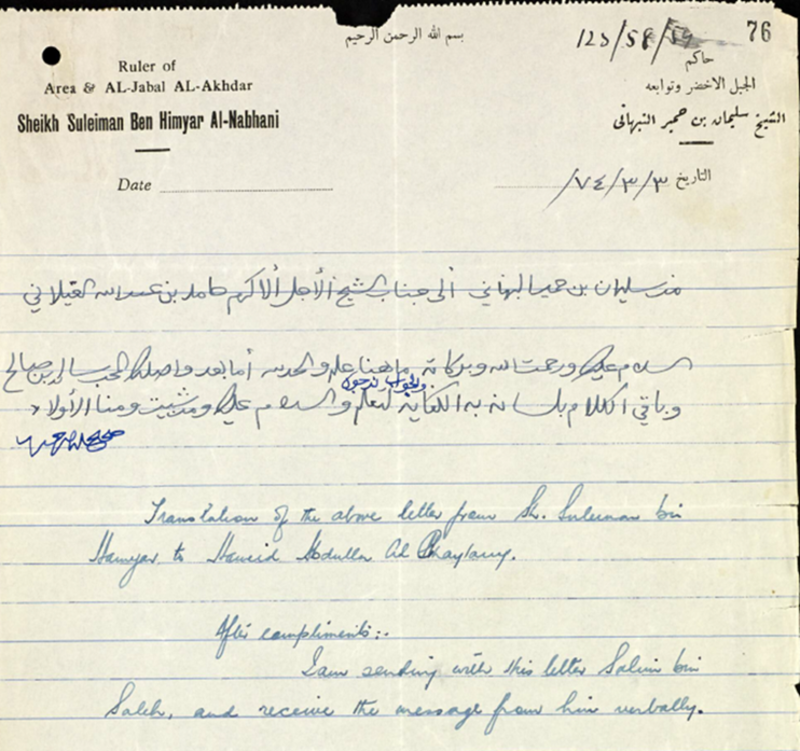 بسم الله الرحمن الرحيم
76
123/58/59
Ruler of
Area & AL-Jabal AL-Akhdar
Sheikh Suleiman Ben Himyar Al-Nabhani
حاكم
الجبل الاخضر وتوابعه
الشيخ سليمان بن حمير النبهاني
Date
التاريخ ٧٤/٣/٣/
من سليمان بن حمير النبهاني ألى جناب الشيخ الأجل ألاكرم حامد بن عبدالله الغيلاني
السلام عليك ورحمت الله وبركاته ما هنا علم والحمدلله أما بعد واصلك المحب سالم بن صالح
والجواب نرجوه
وباقي الكلام بلسانه به الكفاية لتعلم والسلام عليك ومن شيت ومنا الأولاد
Translation of the above letter from Sh. Suleiman bin
Hamyar to Hamid Abdulla Al Ghaylany.
After compliments:-
I am sending with this letter Salim bin
Saleh, and receive the message from him verbally.